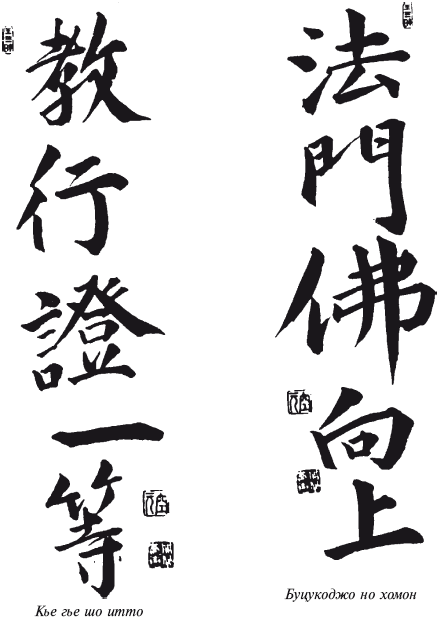 教行證一等
Кье гье шо итто
法門佛向上
Буцукоджо но хомон